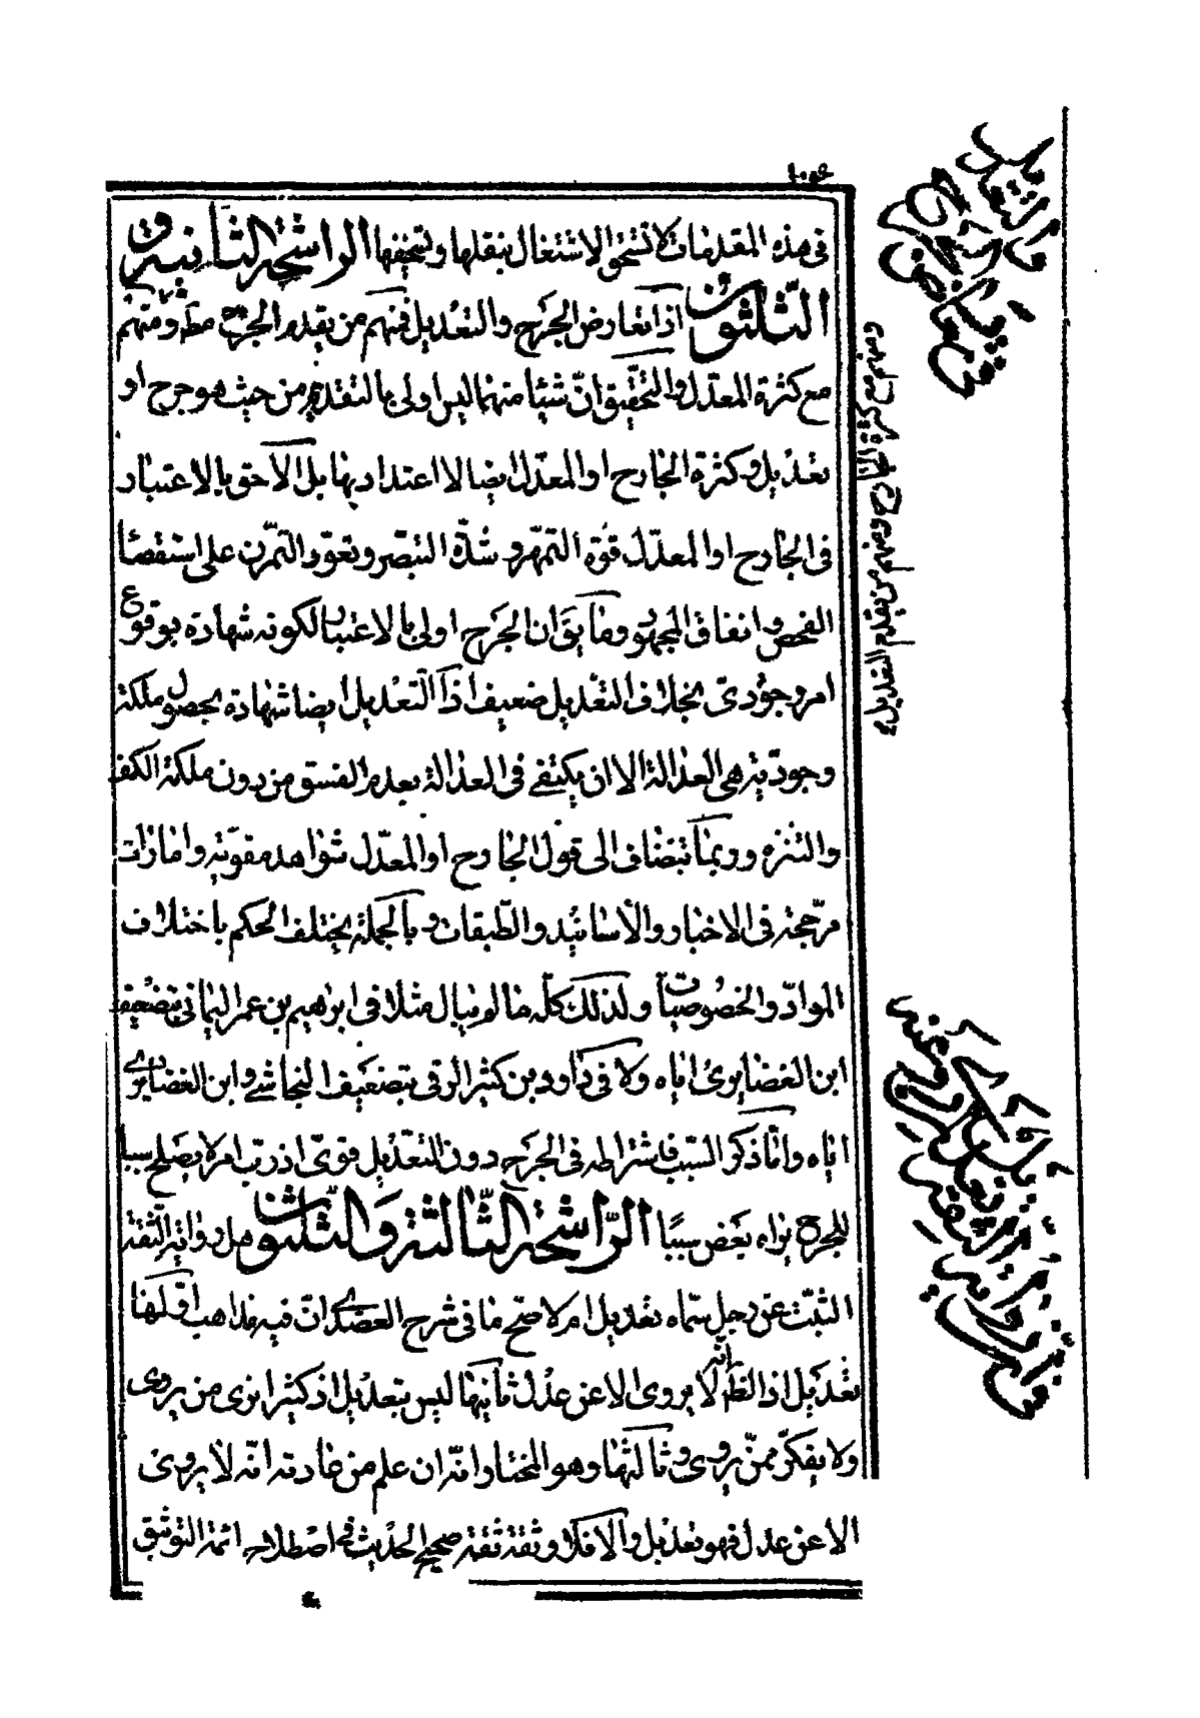 في هذه المقدمات لا نستحق الاشتغال بنقلها وتسخيفها الراشحة الثانية و
الثلثون اذا تعارض الجرح والتعديل فمنهم من يقدم الجرح مط ومنهم
مع كثرة المعدل والتحقيق ان شيئا منهما ليس اولى بالتقديم من حيث هو جرح او
تعديل وكثرة الجارح او المعدل ايضا لا اعتداد بها بل الاحق بالاعتبار
في الجارح او المعدل قوة التمهر وشدة التبصر وتعود التمرن على استقصاء
الفحص وانفاق المجهود وما يق ان الجرح اولى بالاعتبار لكونه شهادة بوقوع
امر وجودى بخلاف التعديل ضعيف اذ التعديل ايضا شهادة بحصول ملكة
وجودية هى العدالة الا ان يكتفى في العدالة بعدم الفسق من دون ملكة الكف
والتنزه وربما تنضاف الى قول الجارح او المعدل شواهد مقوية وامارات
مرجحة في الاخبار والاسانيد والطبقات وبالجملة يختلف الحكم باختلاف
المواد والخصوصيات ولذلك كله ما لم يبال مثلا في ابراهيم بن عمر اليمانى بتضعيف
ابن الغضايرى اياه ولا في داود بن كثير الرقى بتضعيف النجاشى وابن الغضايرى
اياه واما ذكر السبب فاشتراطه في الجرح دون التعديل قوى اذ رب امر لا يصلح سببا
للجرح يراه بعض سببا الراشحة الثالثة والثلثون هل رواية الثقة
الثبت عن رجل سماه تعديل ام لا صح ما في شرح العضدى ان فيه مذاهب اولها
تعديل اذ الظ انه لا يروى الا عن عدل ثانيها ليس بتعديل اذ كثيرا نرى من يروى
ولا يفكر ممن يروى وثالثها وهو المختار انه ان علم من عادته انه لا يروى
الا عن عدل فهو تعديل والا فلا وثقة ثقة صحيح الحديث في اصطلاح ائمة التوثيق